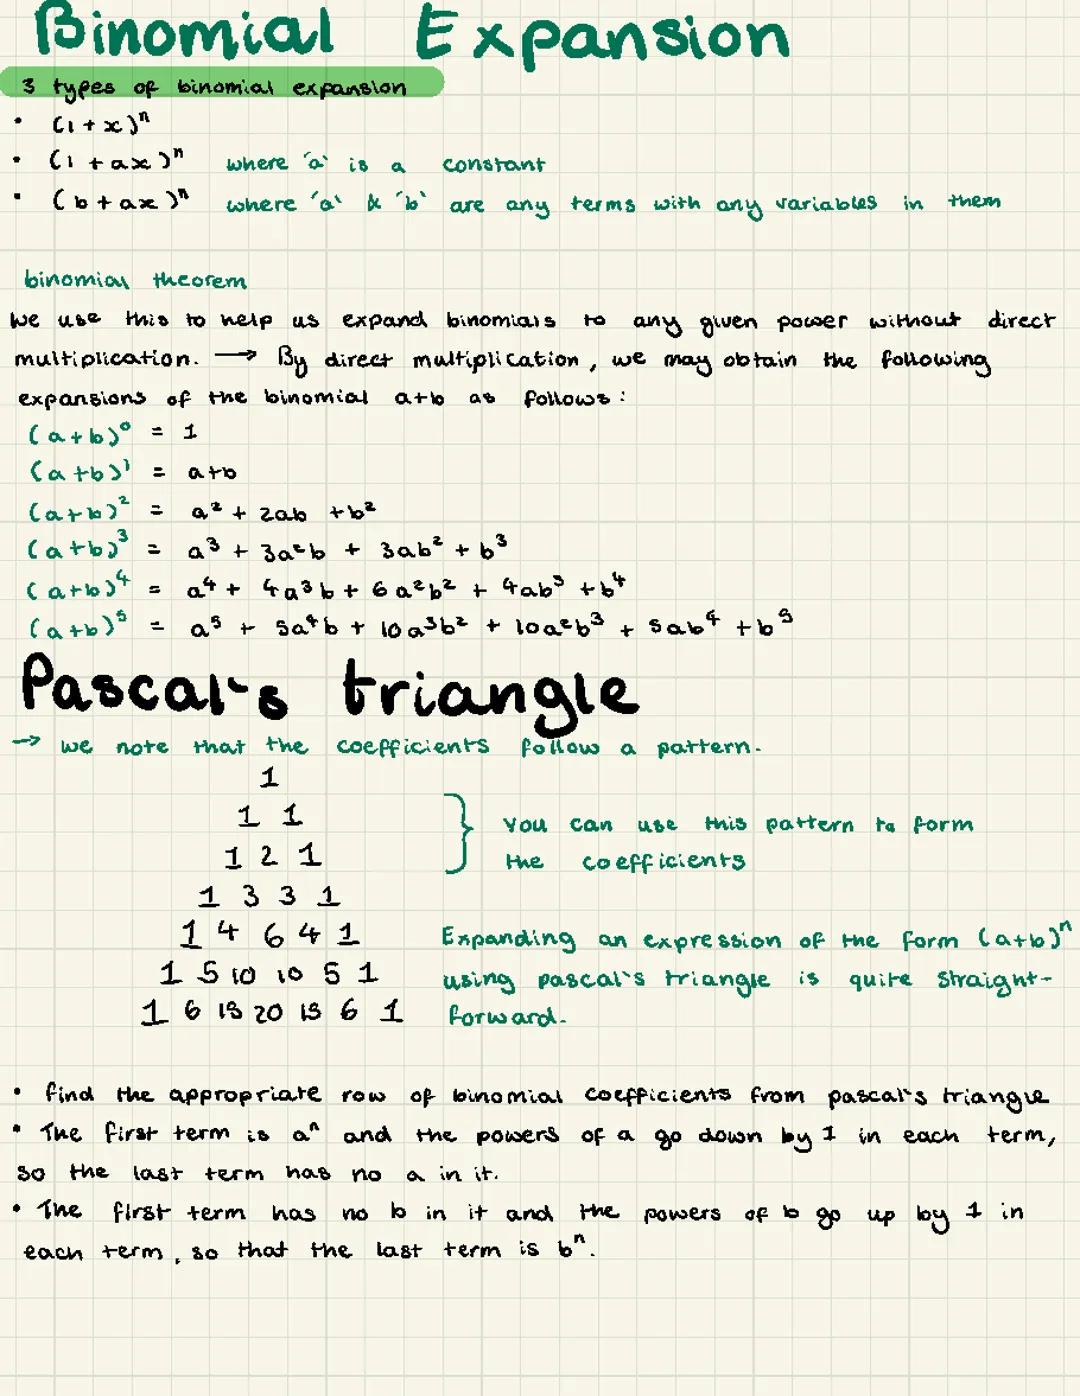 Binomial Expansion
3 types of binomial expansion
• (1+x)ⁿ
• (1+ax)ⁿ where 'a' is a constant
• (b+ax)ⁿ where 'a' & 'b' are any terms with any variables in them
binomial theorem
We use this to help us expand binomials to any given power without direct
multiplication. → By direct multiplication, we may obtain the following
expansions of the binomial a+b as follows:
(a+b)⁰ = 1
(a+b)¹ = a+b
(a+b)² = a² + 2ab + b²
(a+b)³ = a³ + 3a²b + 3ab² + b³
(a+b)⁴ = a⁴ + 4a³b + 6a²b² + 4ab³ + b⁴
(a+b)⁵ = a⁵ + 5a⁴b + 10a³b² + 10a²b³ + 5ab⁴ + b⁵
Pascal's triangle
→ we note that the coefficients follow a pattern.
1
1 1
1 2 1
1 3 3 1
1 4 6 4 1
1 5 10 10 5 1
1 6 15 20 15 6 1
} You can use this pattern to form
the coefficients
Expanding an expression of the form (a+b)ⁿ
using pascal's triangle is quite straight-
forward.
• find the appropriate row of binomial coefficients from pascal's triangle
• The first term is aⁿ and the powers of a go down by 1 in each term,
so the last term has no a in it.
• The first term has no b in it and the powers of b go up by 1 in
each term, so that the last term is bⁿ.